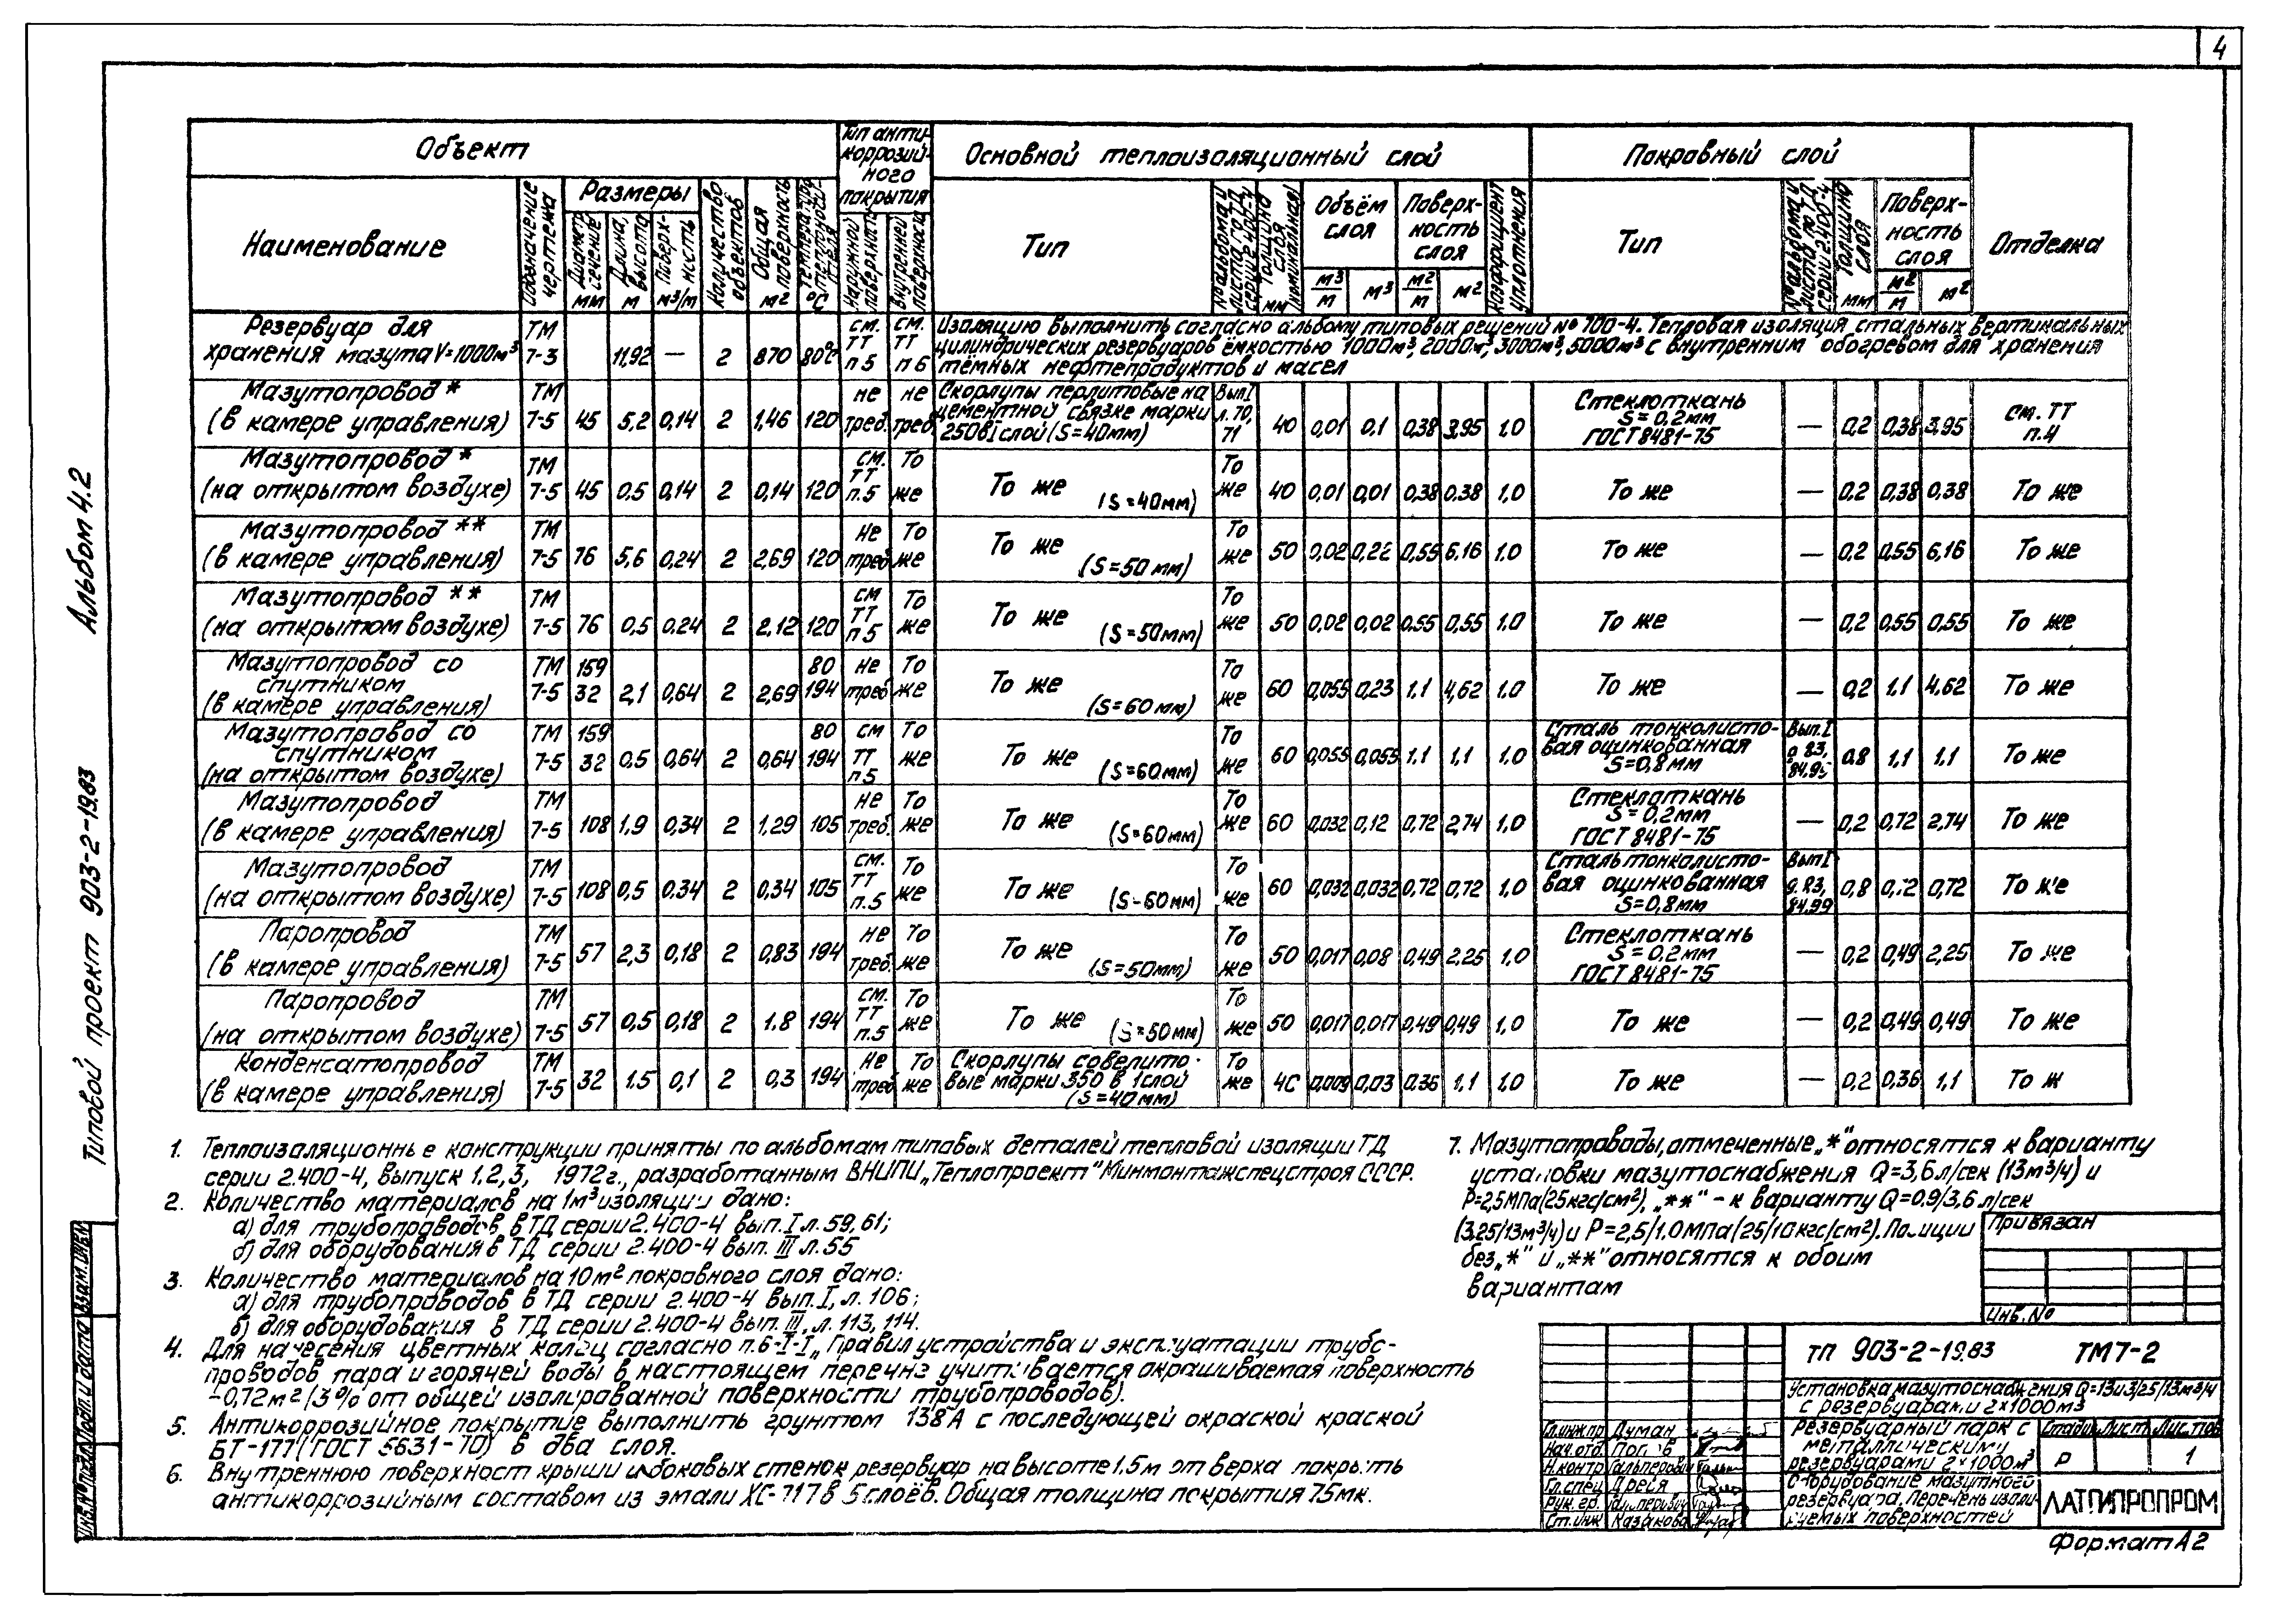 4
Альбом 4.2
Типовой проект 903-2-19.83
Объект
Тип анти-
коррозий-
ного
покрытия
Основной теплоизоляционный слой
Покровный слой
Наименование
Обозначение чертежа
Размеры
Диаметр, сечение
мм
Длина, высота
м
Поверх-ность
м³/м
Количество объектов
Общая поверхность
м²
°C
Наружной поверхности
Внутренней поверхности
Тип
Толщина слоя номинальная
мм
Объём слоя
м³/м
м³
Поверх-
ность
слоя
м²/м
м²
Коэффициент уплотнения
Тип
Толщина слоя
мм
Поверх-
ность
слоя
м²/м
м²
Отделка
Резервуар для хранения мазута V=1000м³ ТМ 7-3 11,92 — 2 870 80°С см. ТТ п5 см. ТТ п6
Изоляцию выполнить согласно альбому типовых решений № 700-4. Тепловая изоляция стальных вертикальных
цилиндрических резервуаров ёмкостью 1000м³, 2000м³, 3000м³, 5000м³ с внутренним обогревом для хранения
тёмных нефтепродуктов и масел
Мазутопровод * (в камере управления) ТМ 7-5 45 5,2 0,14 2 1,46 120 не треб. не треб. Скорлупы перлитовые на цементной связке марки 250 в 1 слой (S=40мм) Вып I л.70, 71 40 0,01 0,1 0,38 3,95 1.0 Стеклоткань S=0,2мм ГОСТ 8481-75 — 0,2 0,38 3,95 см. ТТ п.4
Мазутопровод * (на открытом воздухе) ТМ 7-5 45 0,5 0,14 2 0,14 120 см. ТТ п.5 То же То же (S=40мм) То же 40 0,01 0,01 0,38 0,38 1,0 То же — 0,2 0,38 0,38 То же
Мазутопровод ** (в камере управления) ТМ 7-5 76 5,6 0,24 2 2,69 120 не треб То же То же (S=50мм) То же 50 0,02 0,22 0,55 6,16 1.0 То же — 0,2 0,55 6,16 То же
Мазутопровод ** (на открытом воздухе) ТМ 7-5 76 0,5 0.24 2 2,12 120 см ТТ п.5 То же То же (S=50мм) То же 50 0,02 0,02 0,55 0,55 1.0 То же — 0,2 0,55 0,55 То же
Мазутопровод со спутником (в камере управления) ТМ 7-5 159 32 2,1 0,64 2 2,69 80 194 не треб То же То же (S=60мм) То же 60 0,055 0,23 1.1 4,62 1.0 То же — 0,2 1.1 4.62 То же
Мазутопровод со спутником (на открытом воздухе) ТМ 7-5 159 32 0,5 0,64 2 0,64 80 194 см ТТ п.5 То же То же (S=60мм) То же 60 0,055 0,055 1.1 1,1 1,0 Сталь тонколисто-вая оцинкованная S=0,8мм Вып.I 0,8 1.1 1.1 То же
Мазутопровод (в камере управления) ТМ 7-5 108 1,9 0,34 2 1,29 105 не треб. То же То же (S=60мм) То же 60 0,032 0,12 0,72 2,74 1,0 Стеклоткань S=0,2мм ГОСТ 8481-75 — 0,2 0,72 2,74 То же
Мазутопровод (на открытом воздухе) ТМ 7-5 108 0,5 0.34 2 0,34 105 см. ТТ п.5 То же То же (S-60мм) То же 60 0,032 0,032 0,72 0,72 1,0 Сталь тонколисто-вая оцинкованная S=0,8мм Вып I 0,8 0,72 0,72 То же
Паропровод (в камере управления) ТМ 7-5 57 2,3 0,18 2 0,83 194 не треб. То же То же (S=50мм) То же 50 0,017 0,08 0,49 2,25 1,0 Стеклоткань S=0.2мм ГОСТ 8481-75 — 0,2 0,49 2,25 То же
Паропровод (на открытом воздухе) ТМ 7-5 57 0,5 0,18 2 1.8 194 см. ТТ п.5 То же То же (S=50мм) То же 50 0,017 0,017 0,49 0,49 1,0 То же — 0,2 0,49 0,49 То же
Конденсатопровод (в камере управления) ТМ 7-5 32 1.5 0,1 2 0,3 194 Не треб То же Скорлупы совелито-вые марки 350 в 1слой (S=40мм) То же 40 0,009 0,03 0,36 1,1 1.0 То же — 0,2 0,36 1,1 То ж
1. Теплоизоляционные конструкции приняты по альбомам типовых деталей тепловой изоляции ТД
серии 2.400-4, выпуск 1.2,3, 1972г., разработанным ВНИПИ „Теплопроект" Минмонтажспецстроя СССР.
2. Количество материалов на 1м³ изоляции дано:
а) для трубопроводов в ТД серии 2.400-4 вып. I л. 59, 61;
б) для оборудования в ТД серии 2.400-4 вып. III л. 55
3. Количество материалов на 10м² покровного слоя дано:
а) для трубопроводов в ТД серии 2.400-4 вып. I, л. 106;
б) для оборудования в ТД серии 2.400-4 вып. III, л. 113, 114.
4. Для нанесения цветных колец согласно п. 6-I-I „Правил устройства и эксплуатации трубо-
проводов пара и горячей воды в настоящем перечне учитывается окрашиваемая поверхность
-0,72м² (3% от общей изолированной поверхности трубопроводов).
5. Антикоррозийное покрытие выполнить грунтом 138А с последующей окраской краской
БТ-177 (ГОСТ 5631-70) в два слоя.
6. Внутреннюю поверхност крыши и боковых стенок резервуар на высоте 1.5м от верха покрыть
антикоррозийным составом из эмали ХС-717 в 5 слоёв. Общая толщина покрытия 75мк.
7. Мазутопроводы, отмеченные „*" относятся к варианту
установки мазутоснабжения Q=3,6л/сек (13м³/ч) и
Р=2,5МПа (25кгс/см²), „**" - к варианту Q=0.9/3,6 л/сек
(3.25/13м³/ч) и Р=2,5/1.0МПа (25/10кгс/см²). Позиции
без „*" и „**" относятся к обоим
вариантам
Привязан
Инв. №
ТП 903-2-19.83 ТМ7-2
Установка мазутоснабжения Q=13и3/25/13м³/ч
с резервуарами 2×1000м3
Резервуарный парк с
металлическими
резервуарами 2×1000м³
Стадия Лист Листов
Р 1
Оборудование мазутного
резервуара. Перечень изоли-
руемых поверхностей
ЛАТГИПРОПРОМ
Гл.инж.пр Думан
Нач.отд.
Н.контр Гальперович
Гл.спец Дреся
Рук.гр. Гальперович
Ст.инж Казакова
Взам.инв.№
Подп. и дата
Инв.№подл.
Формат А2